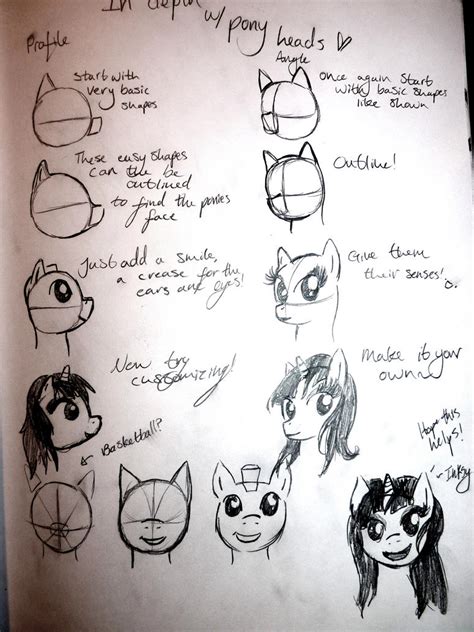 In depth
w/ pony heads
Profile
Angle
start with
very basic
shapes
once again start
with basic shapes
like shown
These easy shapes
can the be
outlined
to find the ponies
face
Outline!
Just add a smile,
a crease for the
ears and eyes!
Give them
their senses!
Now try
customizing!
Make it your
own
Basketball?
Hope this
helps!
Inksy